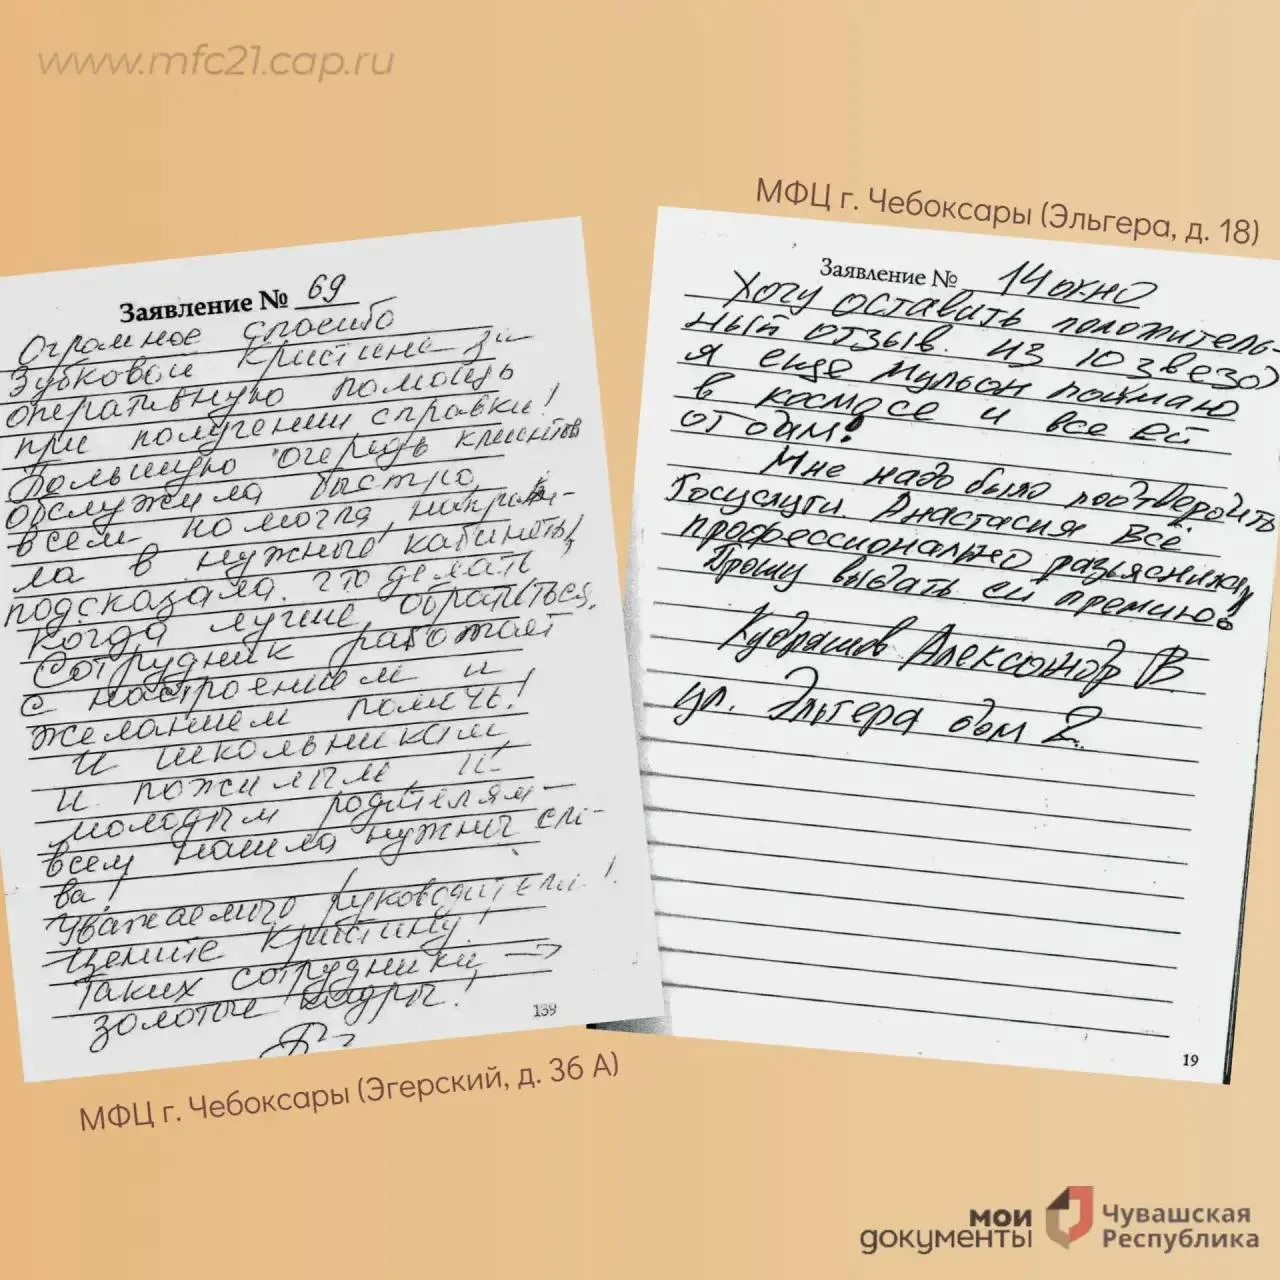 www.mfc21.cap.ru
МФЦ г. Чебоксары (Эльгера, д. 18)
Заявление № 69
Огромное спасибо
Зубковой Кристине за
оперативную помощь
при получении справки!
Большую очередь клиентов
обслужила быстро,
всем помогла, направи-
ла в нужный кабинет,
подсказала что делать,
когда лучше обратиться.
Сотрудник работает
с настроением и
желанием помочь!
И школьникам,
и пожилым, и
молодым родителям –
всем нашла нужные сло-
ва!
Уважаемые руководители!
Цените Кристину!
Таких сотрудники →
золотые кадры!
139
МФЦ г. Чебоксары (Эгерский, д. 36 А)
Заявление № 14 окно
Хочу оставить положитель-
ный отзыв. Из 10 звезд
я еще мульон поймаю
в космосе и все ей
отдам!
Мне надо было подтвердить
Госуслуги. Анастасия всё
профессионально разъяснила,
Прошу выдать ей премию!
Кудрашов Александр В.
ул. Эльгера дом 2
19
мои документы
Чувашская
Республика